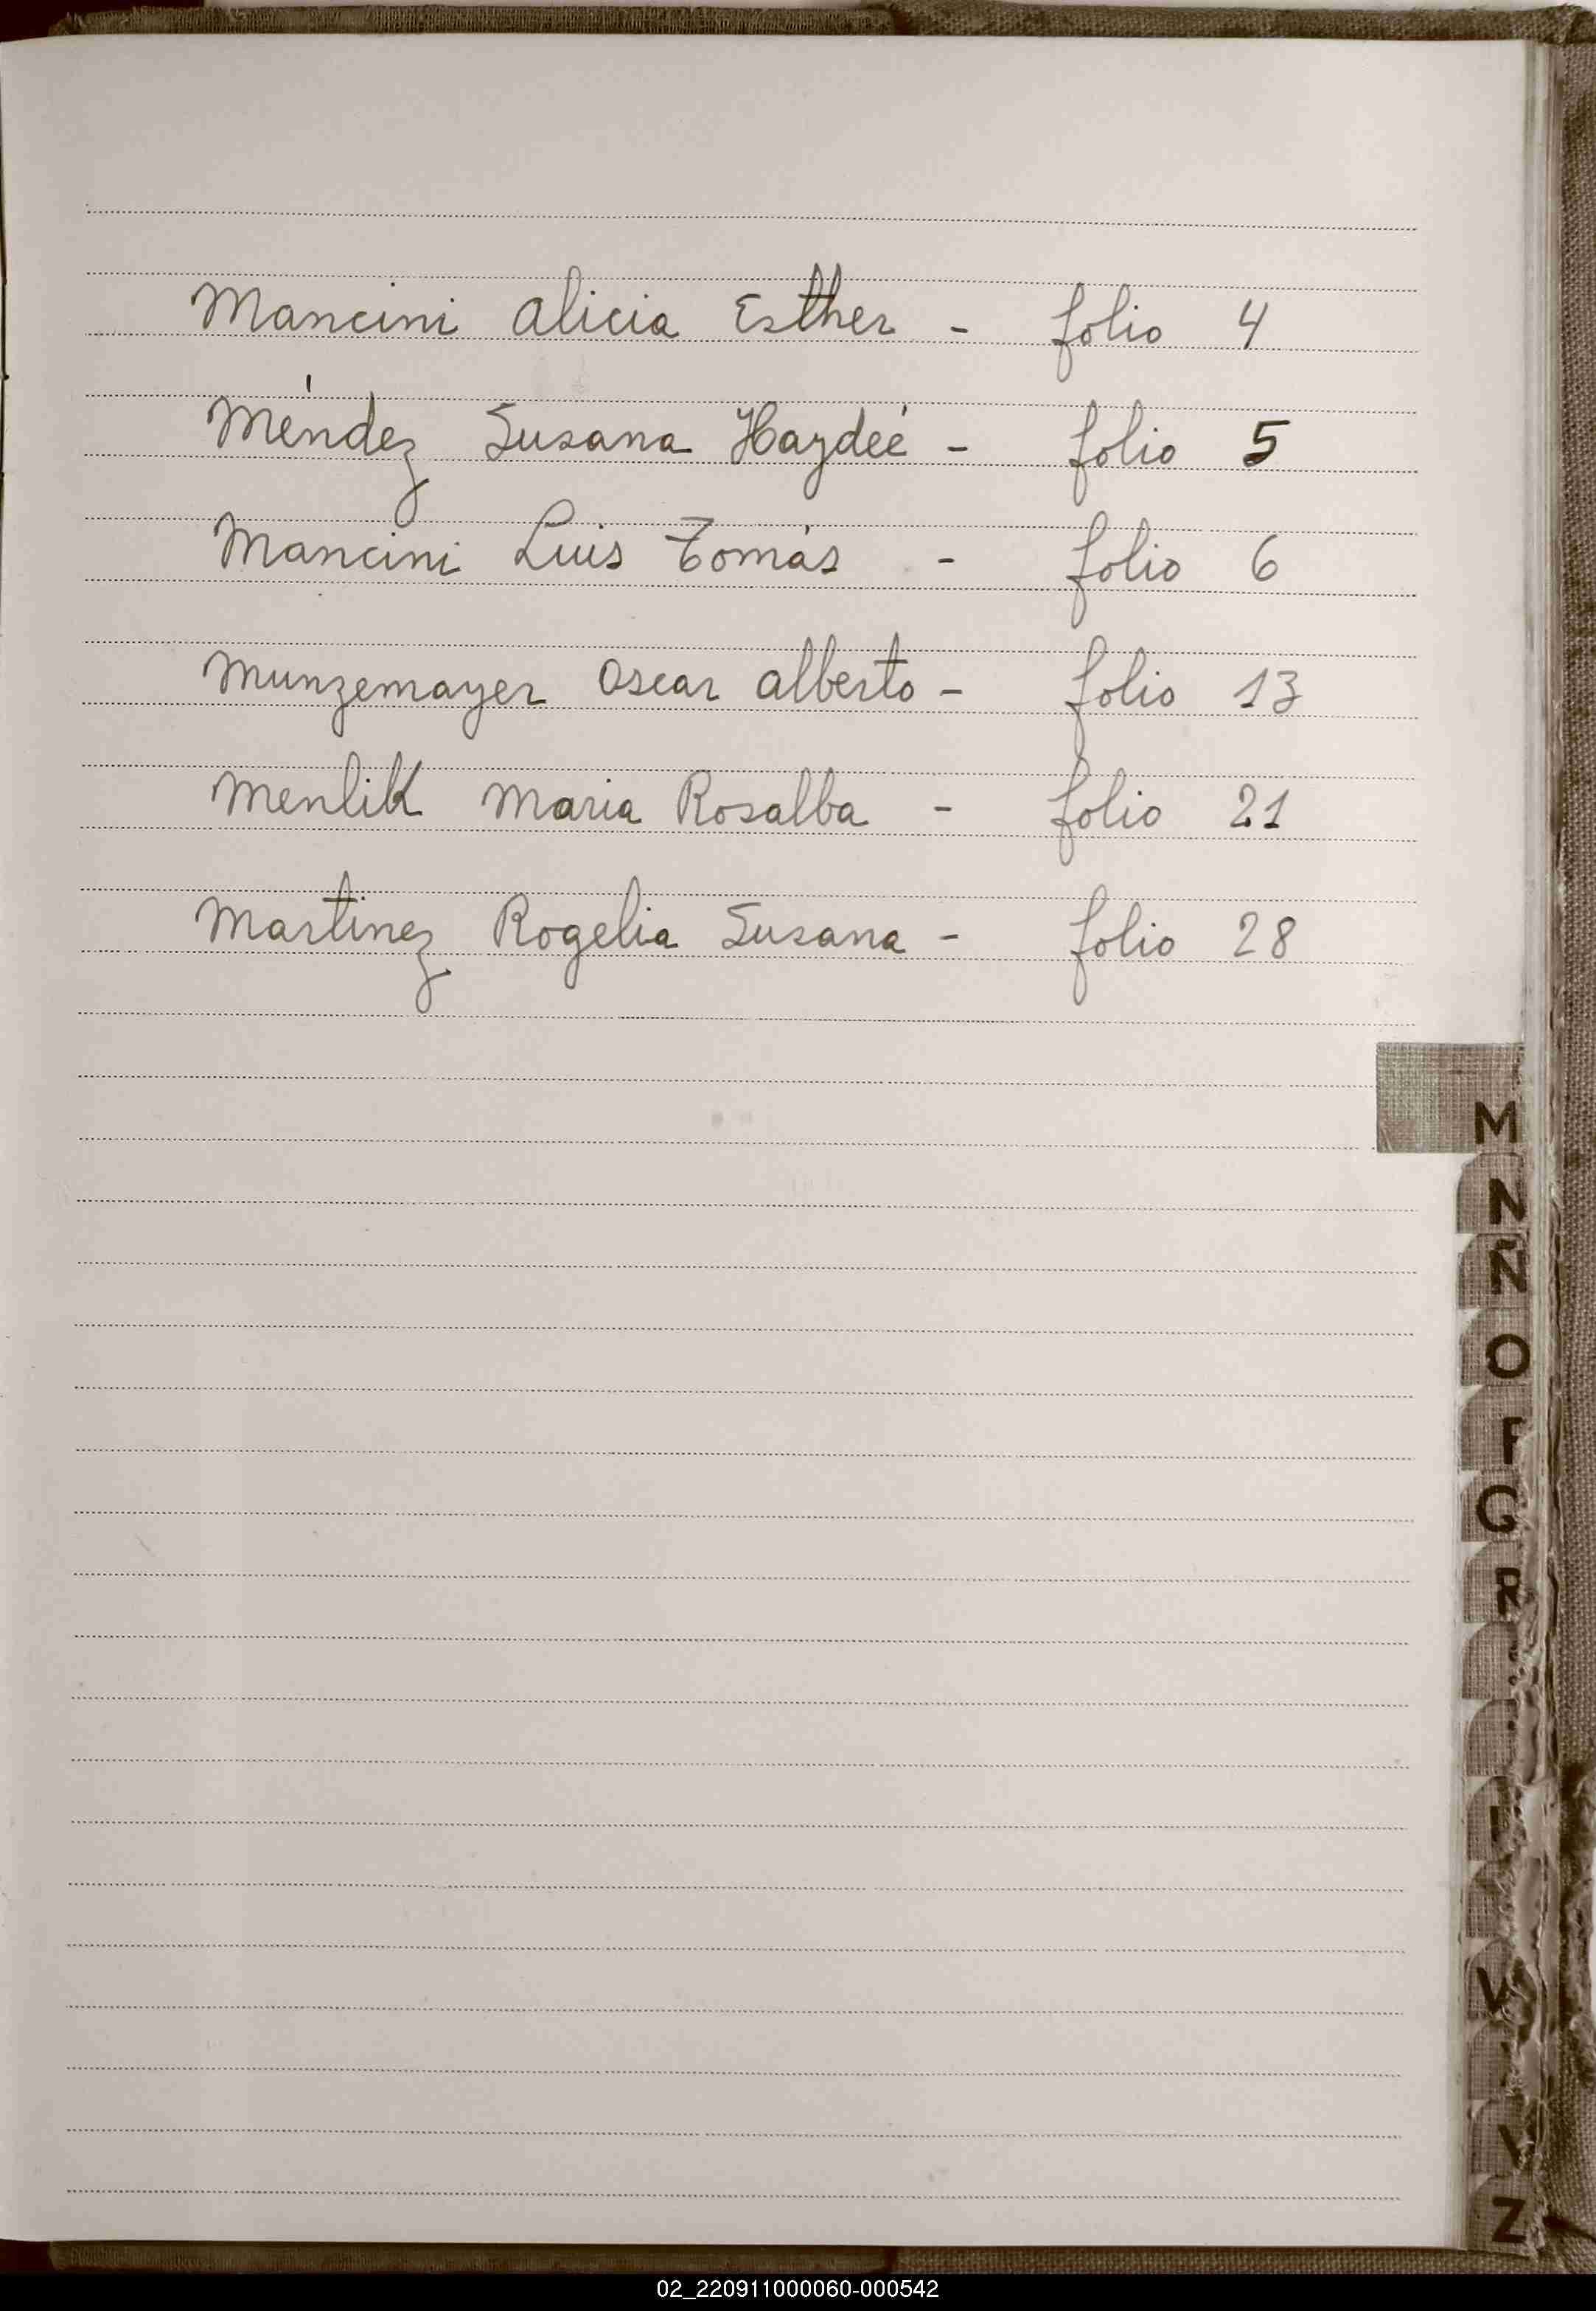 Mancini Alicia Esther - folio 4
Méndez Susana Haydeé - folio 5
Mancini Luis Tomás - folio 6
Munzemayer Oscar Alberto - folio 13
Menlik Maria Rosalba - folio 21
Martinez Rogelia Susana - folio 28
M
N
Ñ
O
G
R
V
Z
02_220911000060-000542